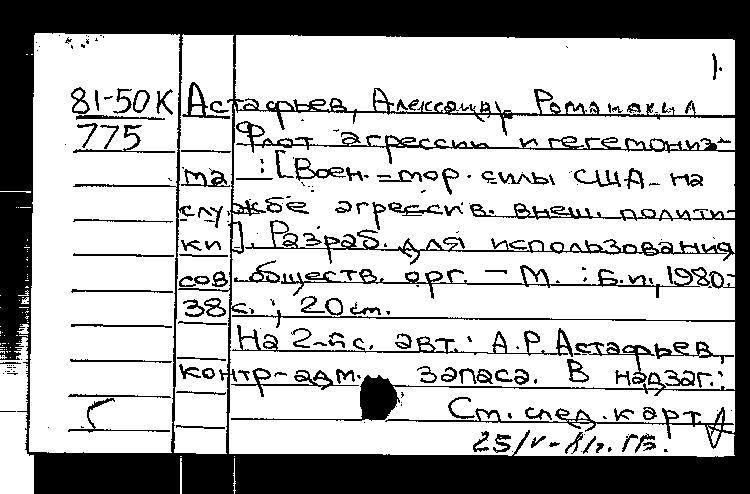 1.
81-50К Астафьев, Александр Романович
775 Флот агрессии и гегемониз-
ма : [Воен.-мор. силы США - на
службе агрессив. внеш. полити-
ки]. Разраб. для использования
сов. обществ. орг. — М. : Б.и., 1980.-
38с. ; 20см.
На 2-й с. авт.: А.Р. Астафьев,
контр-адм. запаса. В надзаг.:
См. след. карт.
25/V-81г.